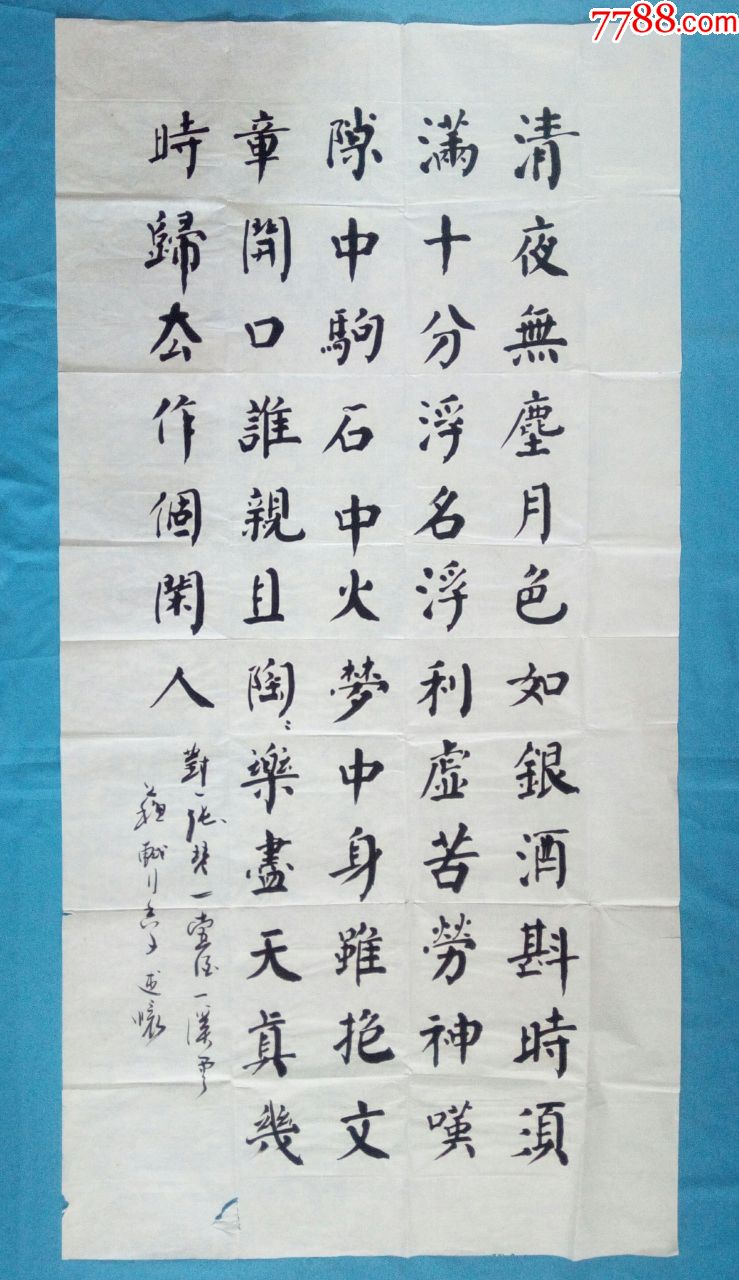 7788.com
清夜無塵月色如銀酒斟時須
滿十分浮名浮利虛苦勞神嘆
隙中駒石中火夢中身雖抱文
章開口誰親且陶〻樂盡天真幾
時歸去作個閑人
對一張琴一壺酒一溪雲
蘇軾行香子述懷